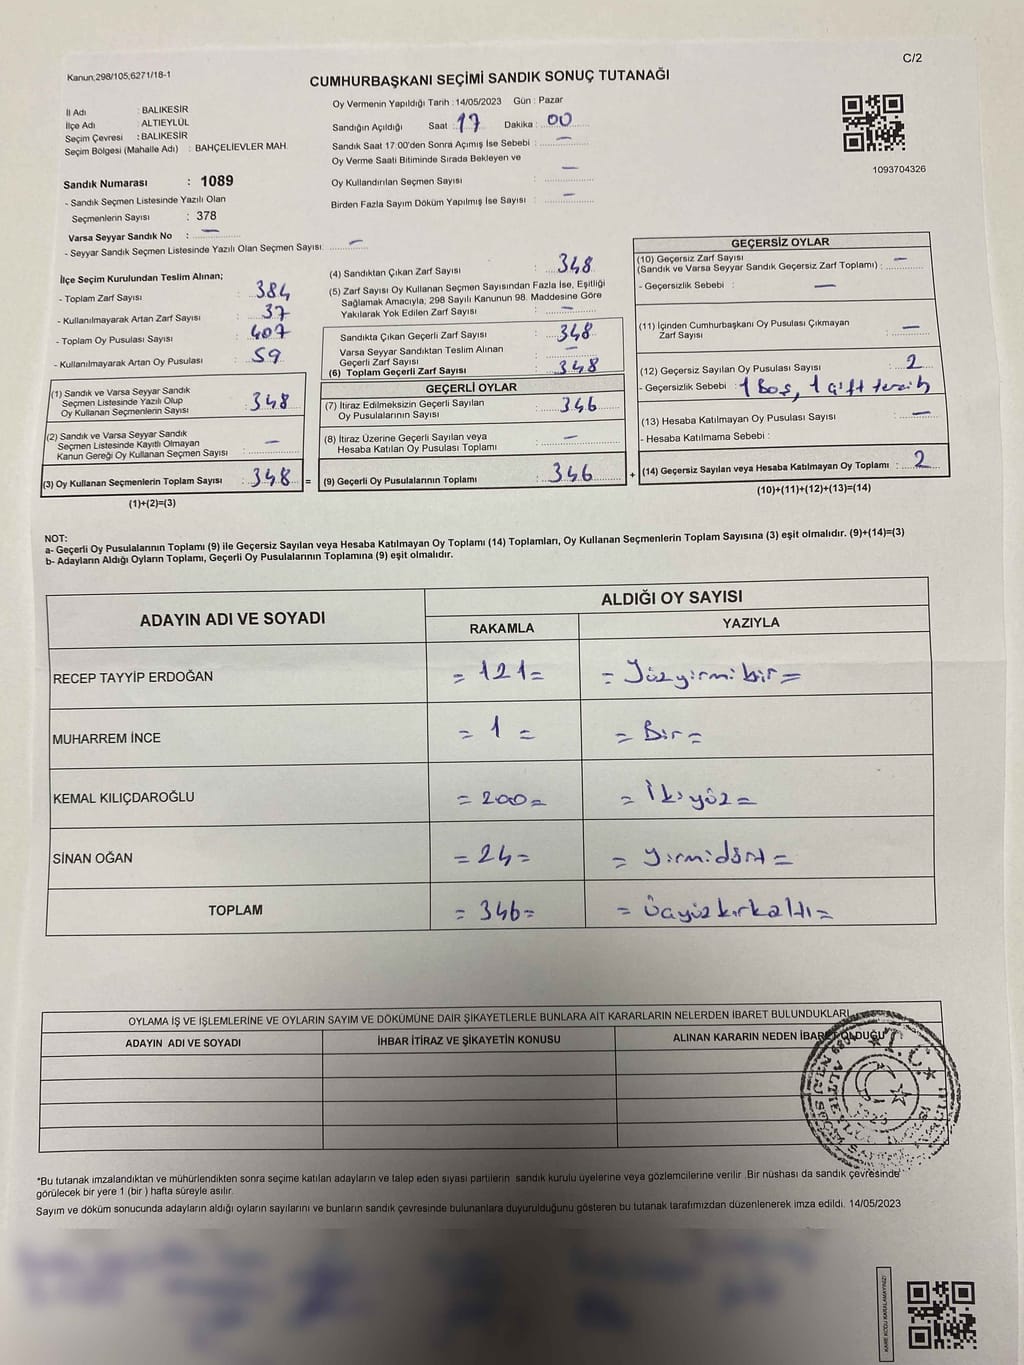 Kanun;298/105,6271/18-1
C/2
CUMHURBAŞKANI SEÇİMİ SANDIK SONUÇ TUTANAĞI
İl Adı : BALIKESİR
İlçe Adı : ALTIEYLÜL
Seçim Çevresi : BALIKESİR
Seçim Bölgesi (Mahalle Adı) : BAHÇELİEVLER MAH.
Sandık Numarası : 1089
- Sandık Seçmen Listesinde Yazılı Olan
Seçmenlerin Sayısı : 378
Varsa Seyyar Sandık No : —
- Seyyar Sandık Seçmen Listesinde Yazılı Olan Seçmen Sayısı: —
Oy Vermenin Yapıldığı Tarih : 14/05/2023 Gün : Pazar
Sandığın Açıldığı Saat : 17 Dakika : 00
Sandık Saat 17:00'den Sonra Açımış İse Sebebi : —
Oy Verme Saati Bitiminde Sırada Bekleyen ve
Oy Kullandırılan Seçmen Sayısı : —
Birden Fazla Sayım Döküm Yapılmış İse Sayısı : —
1093704326
İlçe Seçim Kurulundan Teslim Alınan;
- Toplam Zarf Sayısı : 384
- Kullanılmayarak Artan Zarf Sayısı : 37
- Toplam Oy Pusulası Sayısı : 407
- Kullanılmayarak Artan Oy Pusulası : 59
(1) Sandık ve Varsa Seyyar Sandık
Seçmen Listesinde Yazılı Olup
Oy Kullanan Seçmenlerin Sayısı : 348
(2) Sandık ve Varsa Seyyar Sandık
Seçmen Listesinde Kayıtlı Olmayan
Kanun Gereği Oy Kullanan Seçmen Sayısı : —
(3) Oy Kullanan Seçmenlerin Toplam Sayısı : 348 =
(1)+(2)=(3)
(4) Sandıktan Çıkan Zarf Sayısı : 348
(5) Zarf Sayısı Oy Kullanan Seçmen Sayısından Fazla İse, Eşitliği
Sağlamak Amacıyla; 298 Sayılı Kanunun 98. Maddesine Göre
Yakılarak Yok Edilen Zarf Sayısı : —
Sandıkta Çıkan Geçerli Zarf Sayısı : 348
Varsa Seyyar Sandıktan Teslim Alınan
Geçerli Zarf Sayısı : —
(6) Toplam Geçerli Zarf Sayısı : 348
GEÇERLİ OYLAR
(7) İtiraz Edilmeksizin Geçerli Sayılan
Oy Pusulalarının Sayısı : 346
(8) İtiraz Üzerine Geçerli Sayılan veya
Hesaba Katılan Oy Pusulası Toplamı : —
(9) Geçerli Oy Pusulalarının Toplamı : 346 +
GEÇERSİZ OYLAR
(10) Geçersiz Zarf Sayısı
(Sandık ve Varsa Seyyar Sandık Geçersiz Zarf Toplamı) : —
- Geçersizlik Sebebi : —
(11) İçinden Cumhurbaşkanı Oy Pusulası Çıkmayan
Zarf Sayısı : —
(12) Geçersiz Sayılan Oy Pusulası Sayısı : 2
- Geçersizlik Sebebi : 1 Boş, 1 çift tercih
(13) Hesaba Katılmayan Oy Pusulası Sayısı : —
- Hesaba Katılmama Sebebi :
(14) Geçersiz Sayılan veya Hesaba Katılmayan Oy Toplamı : 2
(10)+(11)+(12)+(13)=(14)
NOT:
a- Geçerli Oy Pusulalarının Toplamı (9) ile Geçersiz Sayılan veya Hesaba Katılmayan Oy Toplamı (14) Toplamları, Oy Kullanan Seçmenlerin Toplam Sayısına (3) eşit olmalıdır. (9)+(14)=(3)
b- Adayların Aldığı Oyların Toplamı, Geçerli Oy Pusulalarının Toplamına (9) eşit olmalıdır.
ADAYIN ADI VE SOYADI
ALDIĞI OY SAYISI
RAKAMLA YAZIYLA
RECEP TAYYİP ERDOĞAN = 121 = = Yüzyirmibir =
MUHARREM İNCE = 1 = = Bir =
KEMAL KILIÇDAROĞLU = 200 = = İkiyüz =
SİNAN OĞAN = 24 = = Yirmidört =
TOPLAM = 346 = = Üçyüzkırkaltı =
OYLAMA İŞ VE İŞLEMLERİNE VE OYLARIN SAYIM VE DÖKÜMÜNE DAİR ŞİKAYETLERLE BUNLARA AİT KARARLARIN NELERDEN İBARET BULUNDUKLARI
ADAYIN ADI VE SOYADI İHBAR İTİRAZ VE ŞİKAYETİN KONUSU ALINAN KARARIN NEDEN İBARET OLDUĞU
T.C.
*Bu tutanak imzalandıktan ve mühürlendikten sonra seçime katılan adayların ve talep eden siyasi partilerin sandık kurulu üyelerine veya gözlemcilerine verilir .Bir nüshası da sandık çevresinde
görülecek bir yere 1 (bir ) hafta süreyle asılır.
Sayım ve döküm sonucunda adayların aldığı oyların sayılarını ve bunların sandık çevresinde bulunanlara duyurulduğunu gösteren bu tutanak tarafımızdan düzenlenerek imza edildi. 14/05/2023
KARE KODU KARALAMAYINIZ!